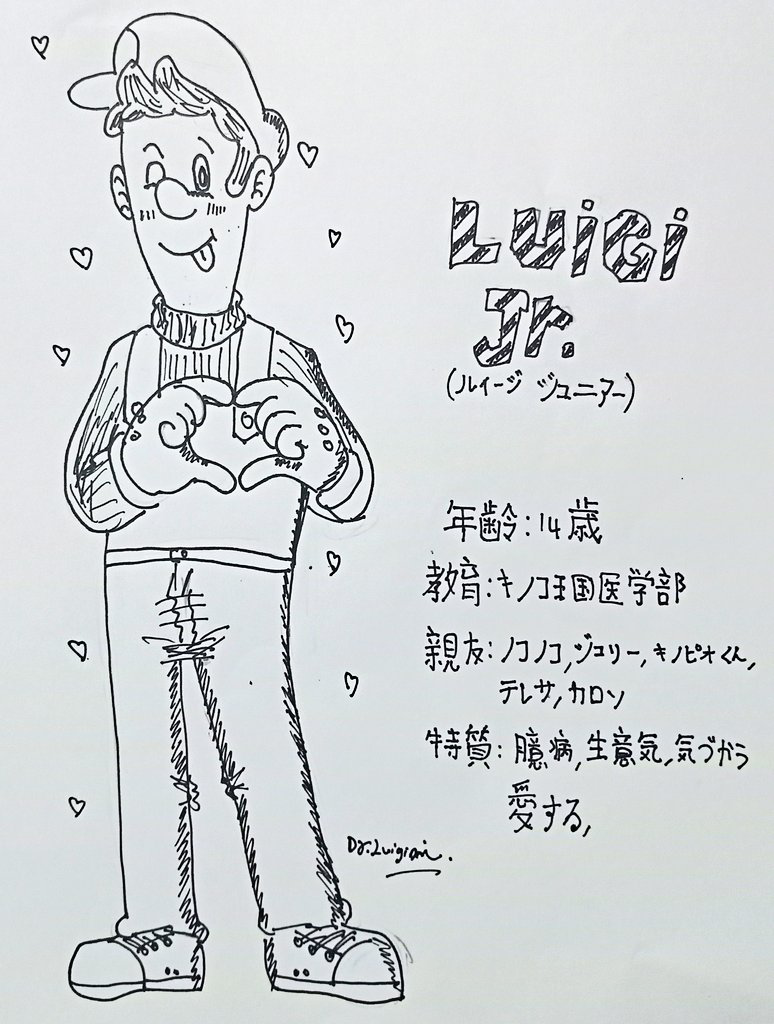 LUiGi
Jr.
(ルイージ ジュニアー)
年齢:14歳
教育:キノコ王国医学部
親友:ノコノコ,ジュリー,キノピオくん,
テレサ,カロン
特質:臆病,生意気,気づかう
愛する,
Dr.Luigiani.